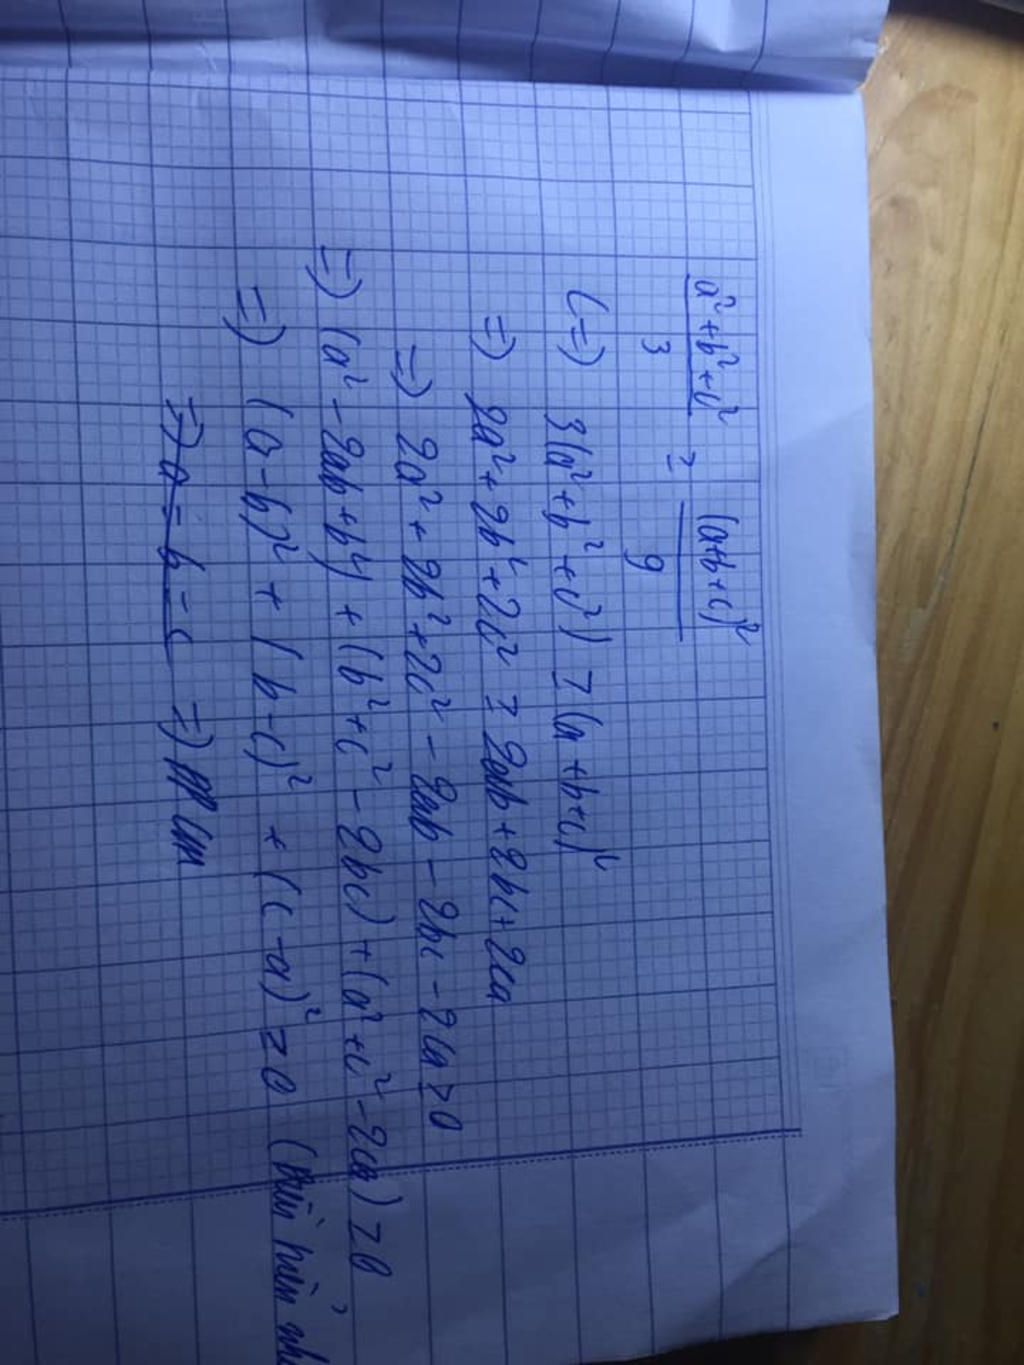 a²+b²+c² / 3 ≥ (a+b+c)² / 9
(=) 3(a²+b²+c²) ≥ (a+b+c)²
=) 2a²+2b²+2c² ≥ 2ab+2bc+2ca
=) 2a²+2b²+2c²-2ab-2bc-2ca ≥ 0
=) (a²-2ab+b²)+(b²+c²-2bc)+(a²+c²-2ca) ≥ 0
=) (a-b)²+(b-c)²+(c-a)² ≥ 0 (hiển
=) a=b=c =)